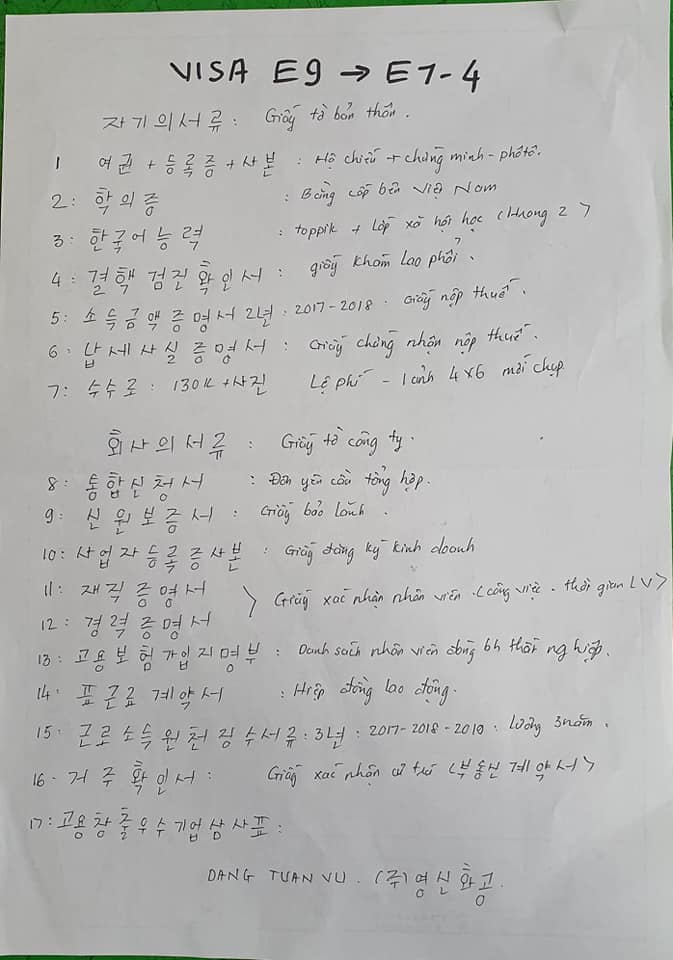 VISA E9 → E7-4
자기의서류: Giấy tờ bản thân.
1 여권 + 등록증 + 사본 : Hộ chiếu + chứng minh - phôtô.
2: 학의증 : Bằng cấp bên Việt Nam
3: 한국어능력 : toppik + lớp xã hội học (trong 2 >
4: 결핵 검진 확인서 : giấy khám lao phổi.
5: 소득금액증명서 2년 : 2017-2018 . Giấy nộp thuế.
6: 납세사실증명서 : Giấy chứng nhận nộp thuế.
7: 수수료: 130k + 사진 Lệ phí - 1 ảnh 4x6 mới chụp
회사의서류 : Giấy tờ công ty.
8: 통합신청서 : Đơn yêu cầu tổng hợp.
9: 신원보증서 : Giấy bảo lãnh.
10: 사업자등록증사본 : Giấy đăng ký kinh doanh
11: 재직증명서
12: 경력증명서 > Giấy xác nhận nhân viên .(công việc . thời gian LV>
13: 고용보험가입자명부 : Danh sách nhân viên đóng bh thất nghiệp.
14: 표근료 계약서 : Hợp đồng lao động.
15: 근로소득원천징수서류: 3년 : 2017-2018-2019 . lương 3 năm.
16- 거주확인서: Giấy xác nhận cư trú <부동산계약서>
17: 고용창출우수기업삼사표:
DANG TUAN VU . (주)영신화공.